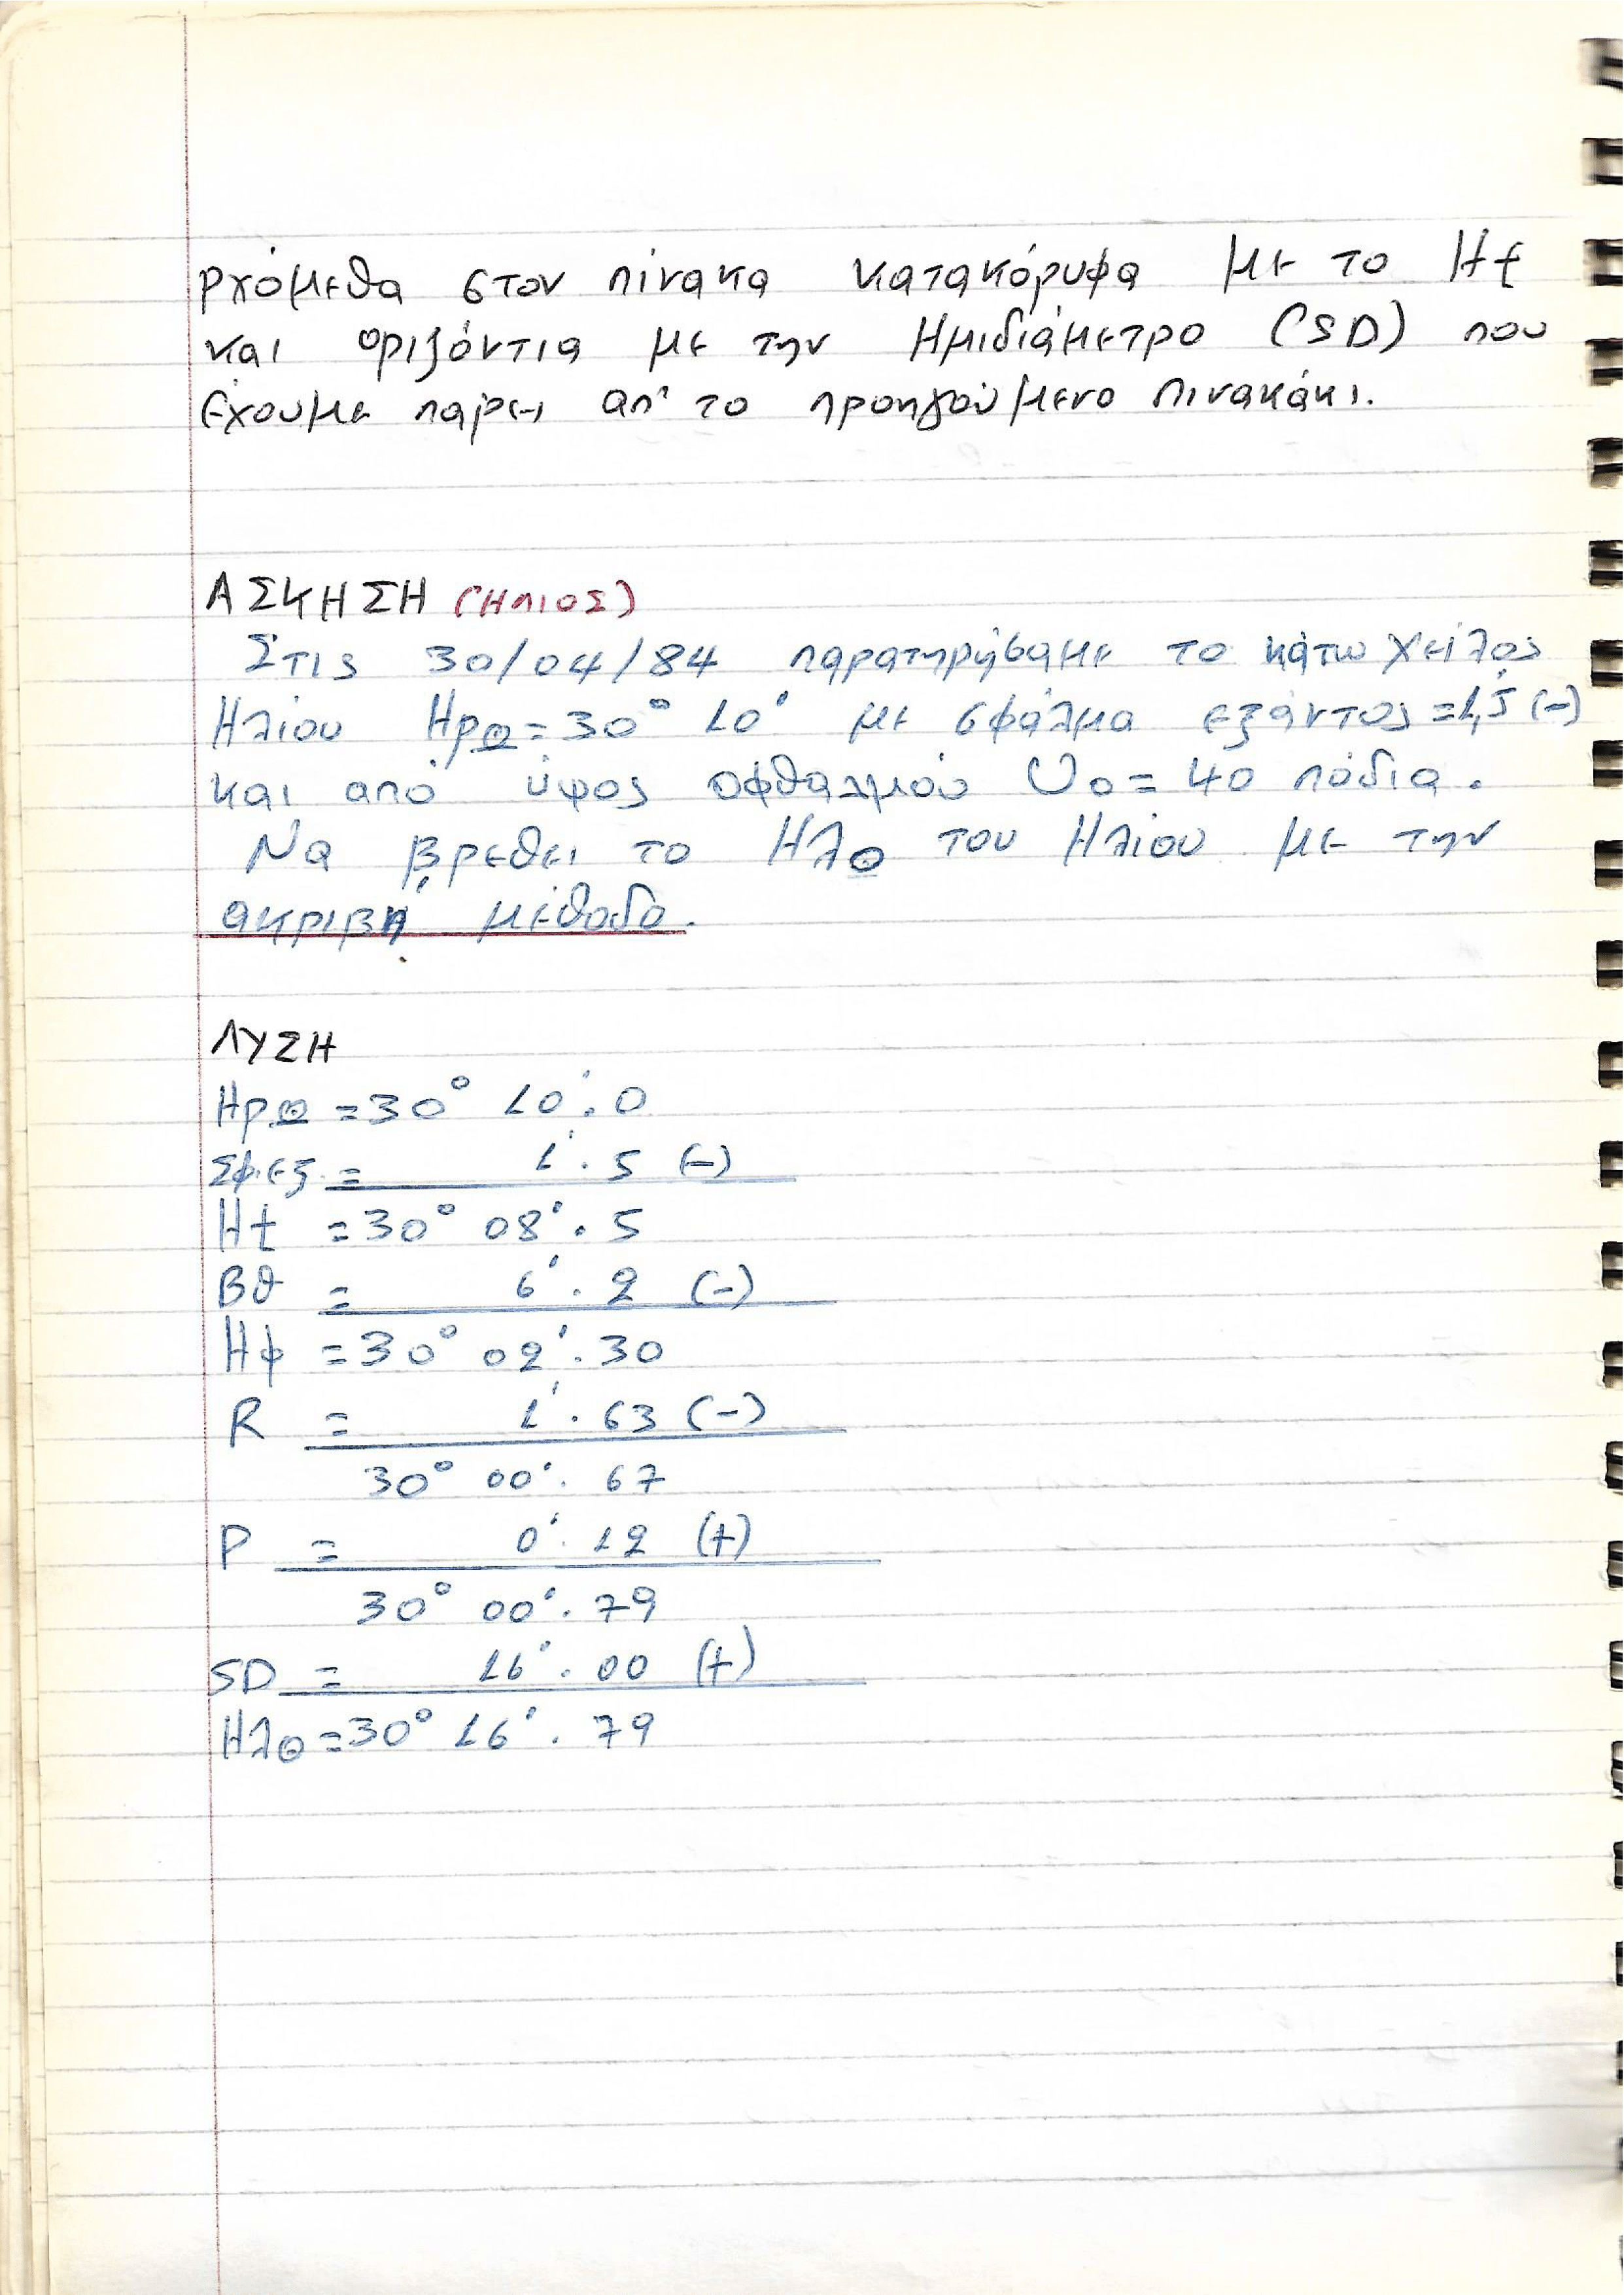 ρχόμεθα στον πίνακα κατακόρυφα με το Ht
και οριζόντια με την Ημιδιάμετρο (SD) που
έχουμε πάρει απ' το προηγούμενο πινακάκι.
ΑΣΚΗΣΗ (ΗΛΙΟΣ)
Στις 30/04/84 παρατηρήσαμε το κάτω χείλος
Ηλίου Ηρ☉ = 30° 10' με σφάλμα εξάντος = 1,5 (-)
και από ύψος οφθαλμού Υο = 40 πόδια.
Να βρεθει το Ηλ☉ του Ηλίου με την
ακριβή μέθοδο.
ΛΥΣΗ
Ηρ☉ = 30° 10'.0
Σφ.εξ. = 1'.5 (-)
Ht = 30° 08'.5
Βθ = 6'.2 (-)
Ηφ = 30° 02'.30
R = 1'.63 (-)
30° 00'.67
P = 0'.12 (+)
30° 00'.79
SD = 16'.00 (+)
Ηλ☉ = 30° 16'.79